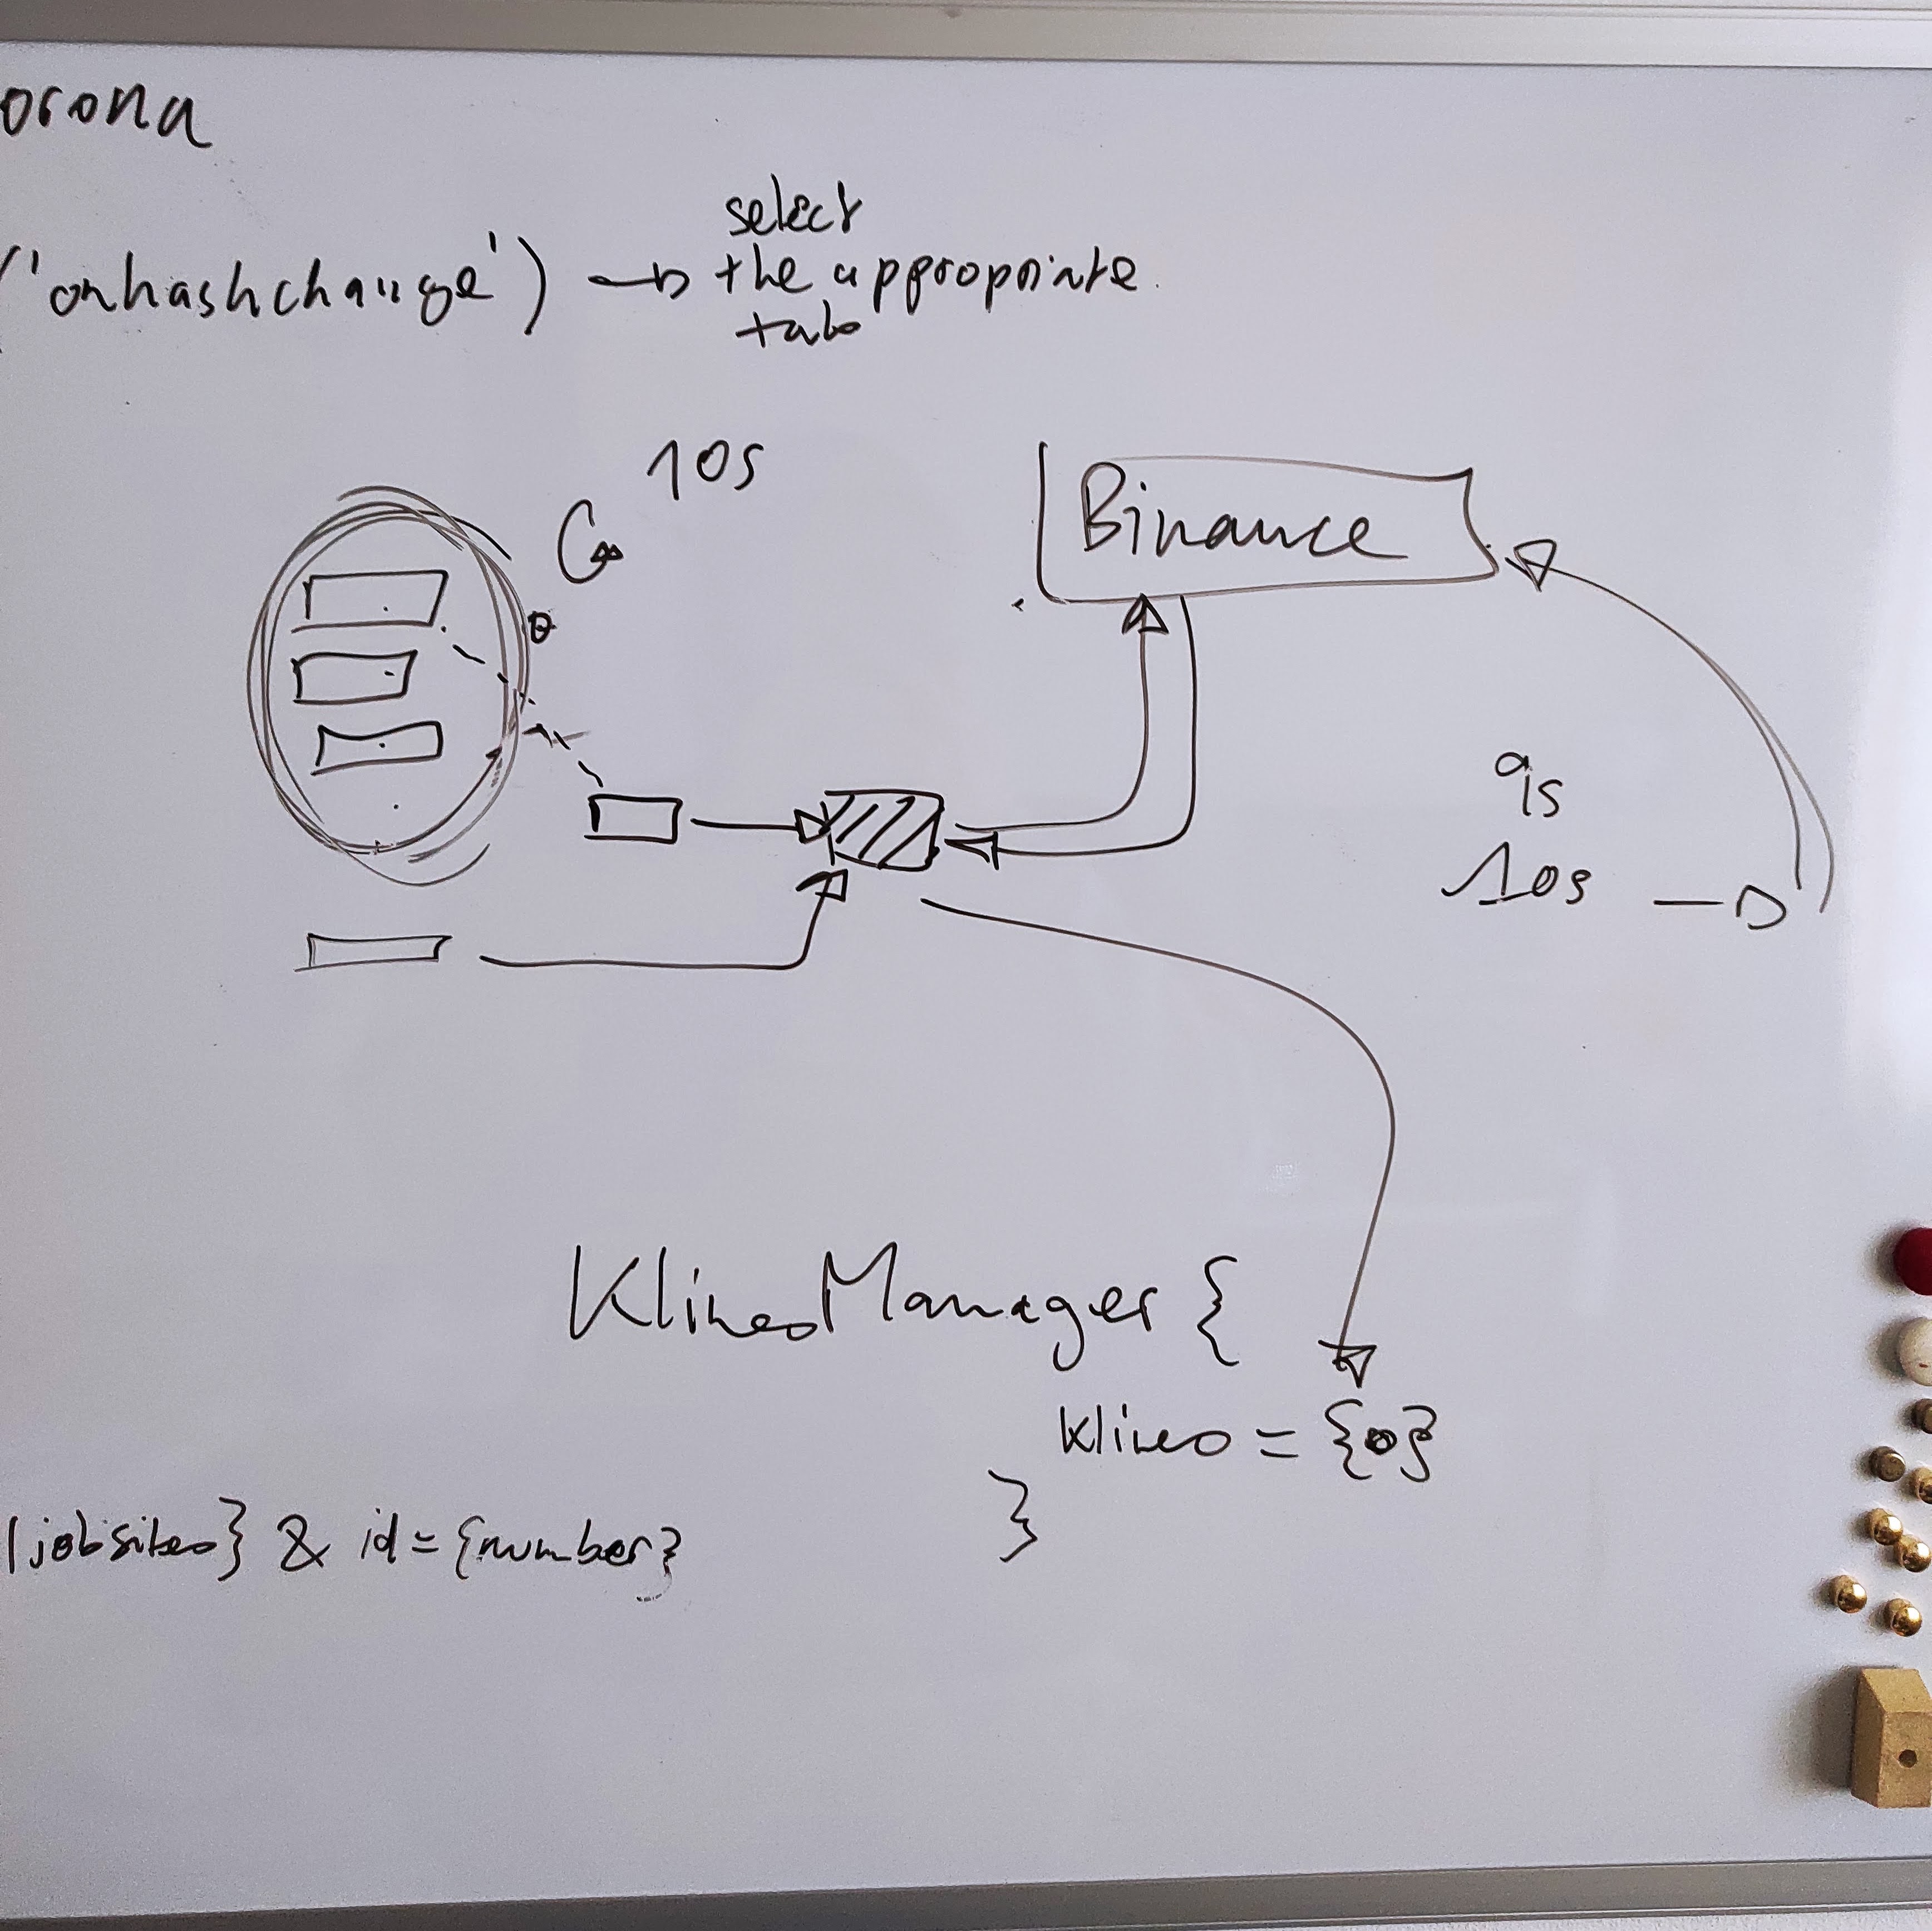 orona
select
('onhashchange') → the appropriate
tab
10s
Binance
9s
10s
KlinesManager {
klines = {}
}
jobsites} & id={number}